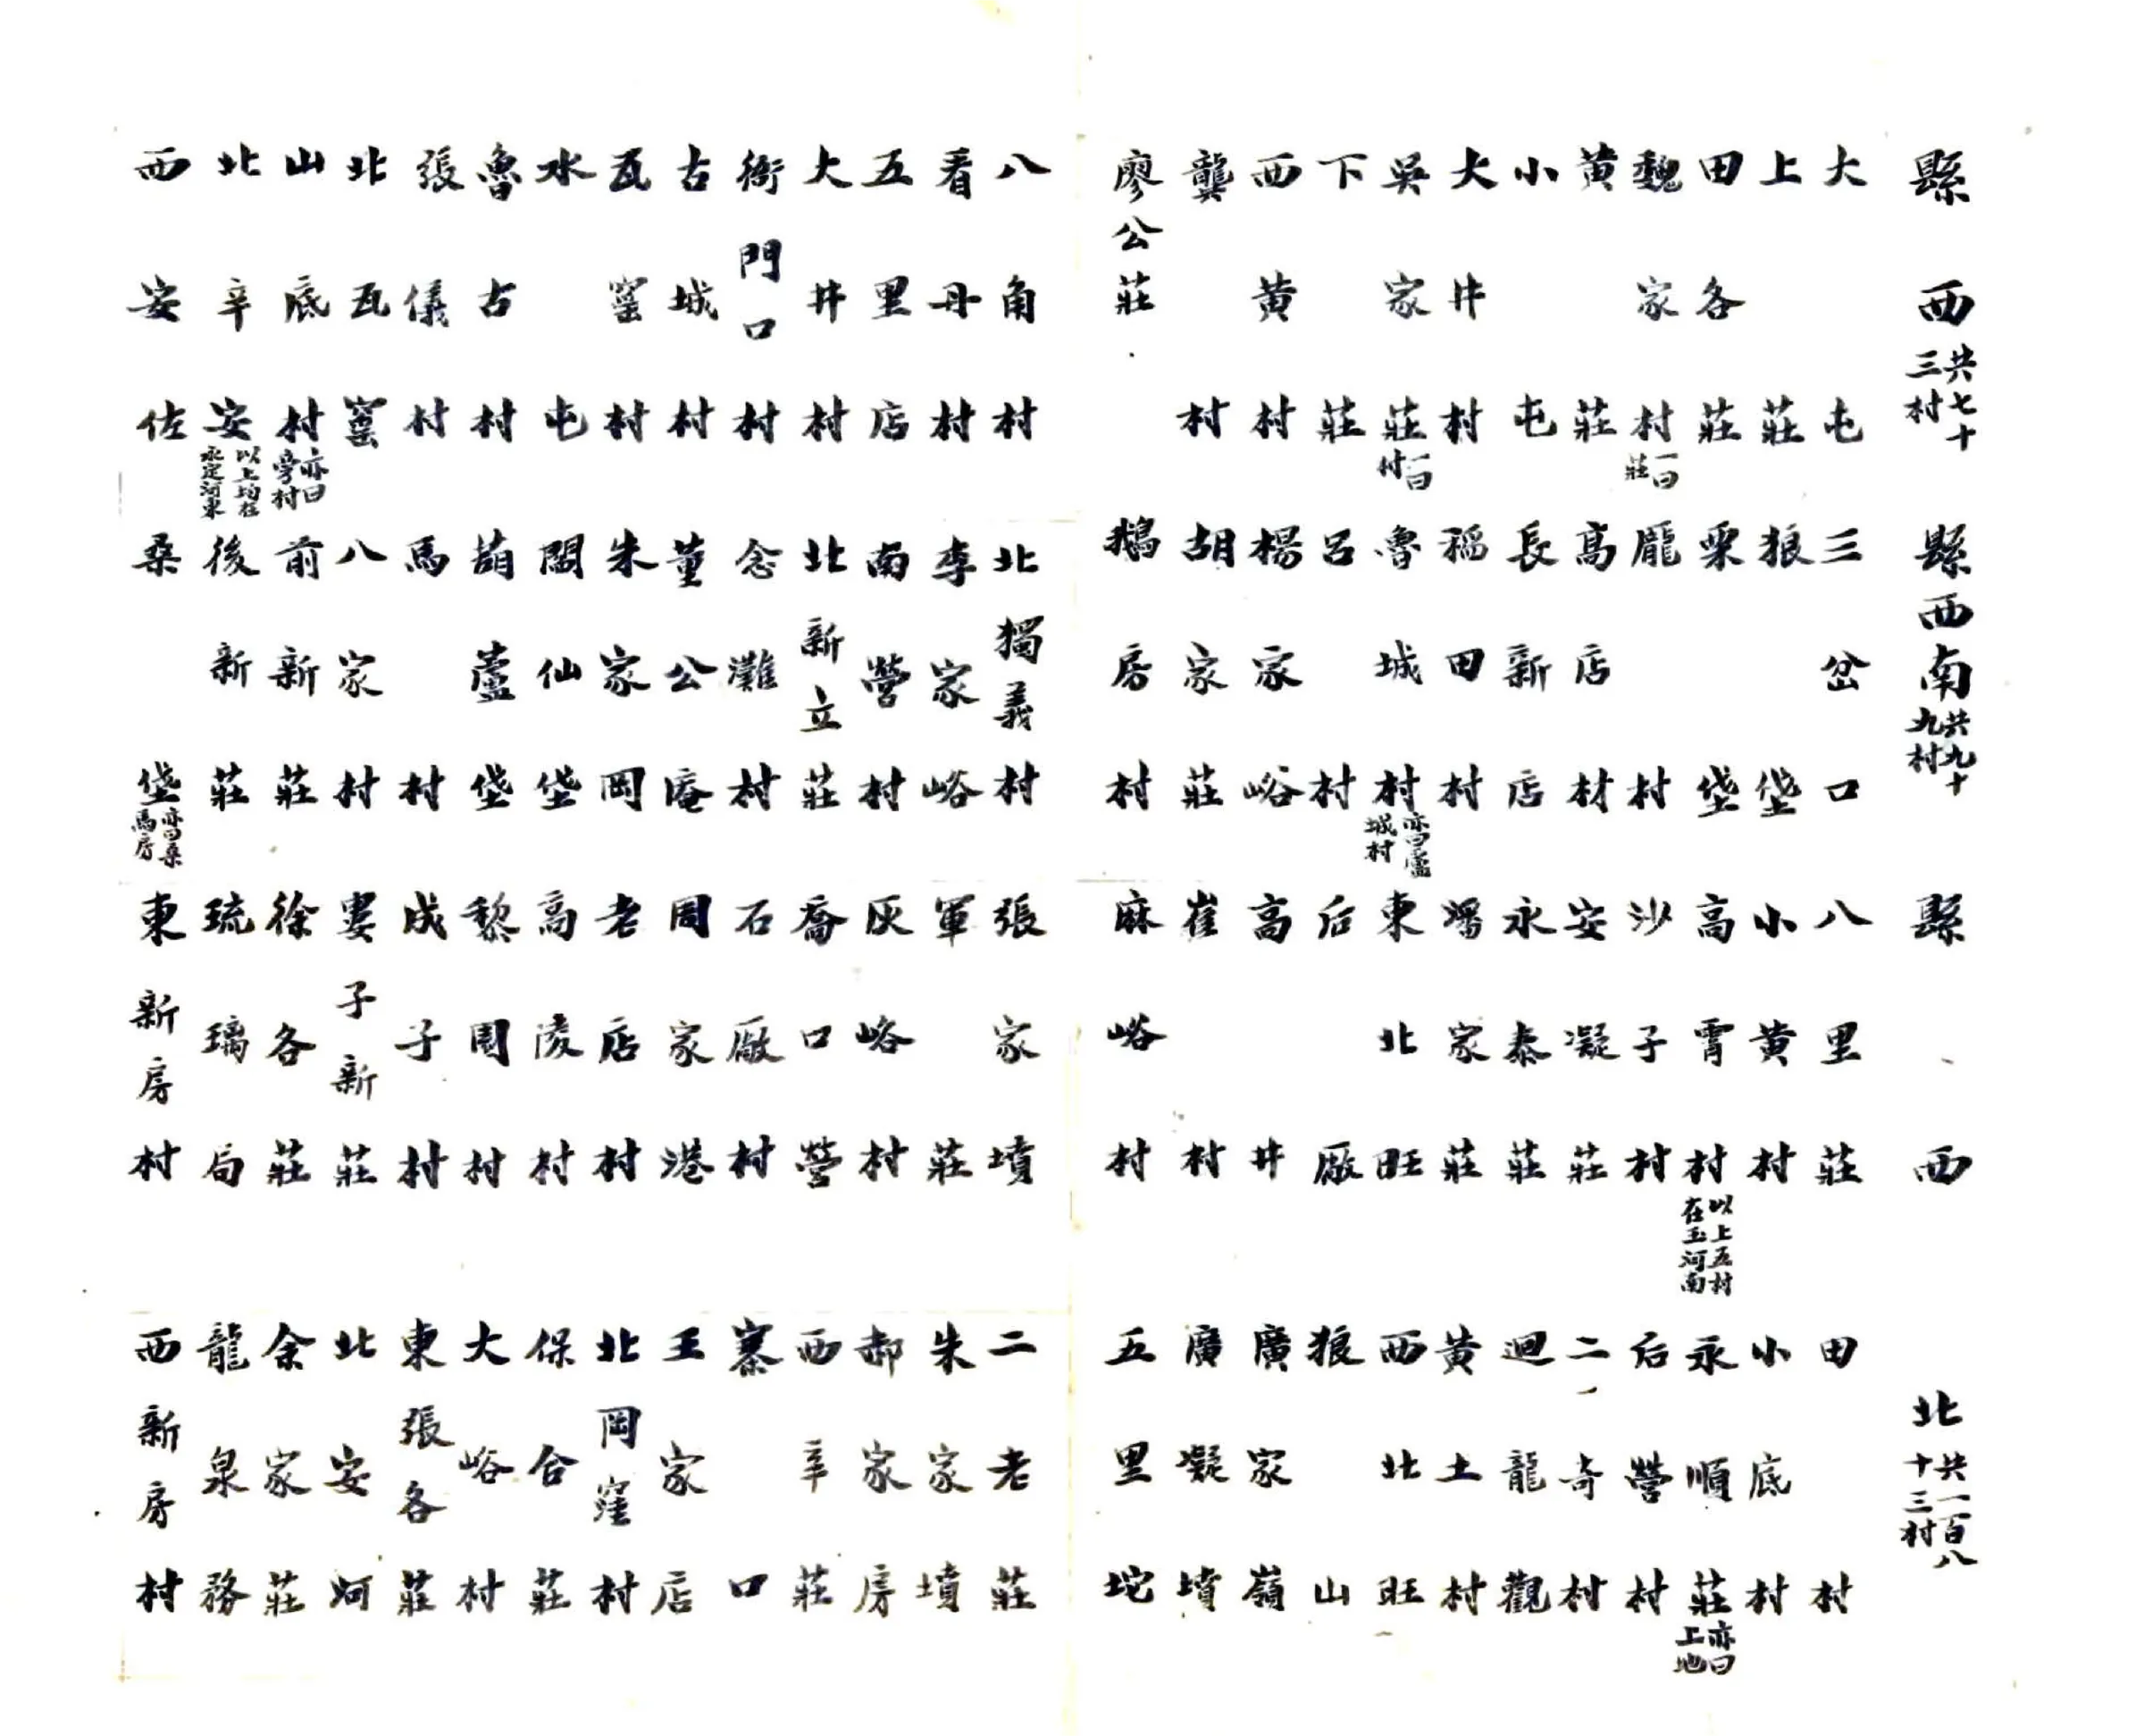 縣西共七十三村 縣西南共九十九村 縣西北共一百八十三村
大屯 三岔口 八里莊 田村
上莊 狼垡 小黃村 小底村
田各莊 栗垡 高霄村以上五村在玉河南 永順莊亦曰上地
魏家村一曰莊 龐村 沙子村 后營村
黃莊 高店材 安凝莊 二奇村
小屯 長新店 永泰莊 迴龍觀
大井村 稲田村 潘家莊 黃土村
吳家莊一曰村 魯城村亦曰蘆城村 東北旺 西北旺
下莊 呂村 后廠 狼山
西黃村 楊家峪 高井 廣家嶺
龔村 胡家莊 崔村 廣凝墳
廖公莊 鵝房村 麻峪村 五里坨
八角村 北獨義村 張家墳 二老莊
看丹村 李家峪 軍莊 朱家墳
五里店 南營村 灰峪村 郝家房
大井村 北新立莊 喬口營 西辛莊
衙門口村 念灘村 石廠村 寨口
古城村 董公庵 周家港 王家店
瓦窰村 朱家岡 老店村 北岡窪村
水屯 閻仙垡 高陵村 保合莊
魯古村 葫蘆垡 黎園村 大峪村
張儀村 馬村 成子村 東張各莊
北瓦窰 八家村 婁子新莊 北安河
山底村亦曰旁村 前新莊 徐各莊 余家莊
北辛安以上均在永定河東 後新莊 琉璃局 龍泉務
西安佐 桑垡亦曰桑馬房 東新房村 西新房村